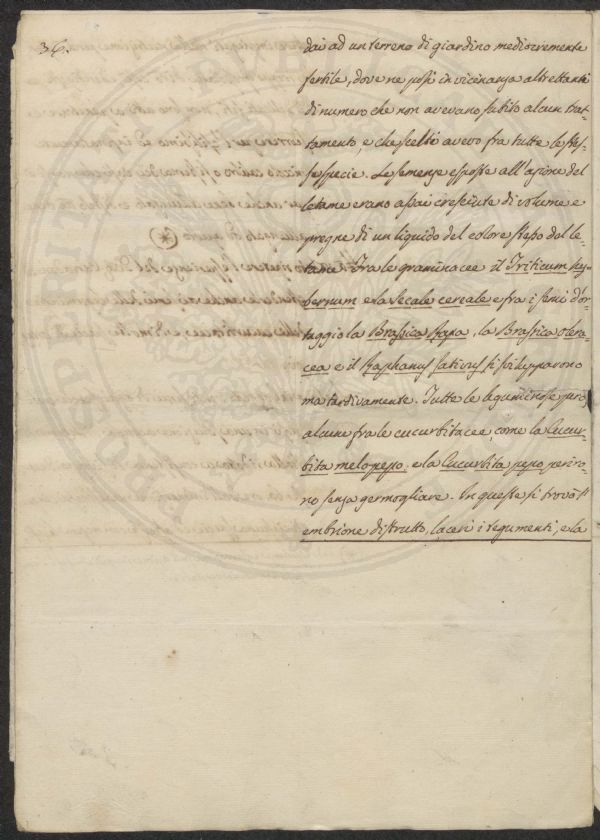 36.
dai ad un terreno di giardino mediocremente
fertile, dove ne posi in vicinanza altrettanti
di numero che non avevano subito alcun trat-
tamento, e che scelti avevo fra tutte le stes-
se specie. Le semenze esposte all'azione del
letame erano assai cresciute di volume e
pregne di un liquido del colore stesso dal le-
tame. Fra le graminacee il Triticum hy-
bernum e la Secale cereale e fra i semi d'or-
taggio la Brassica Rapa, la Brassica olera-
cea e il Raphanus sativus si svilupparono
ma tardivamente. Tutte le leguminose però
alcune fra le cucurbitacee, come la Cucur-
bita melopepo, e la Cucurbita pepo periro-
no senza germogliare. In queste si trovò l'
embrione distrutto, laceri i tegumenti, e la